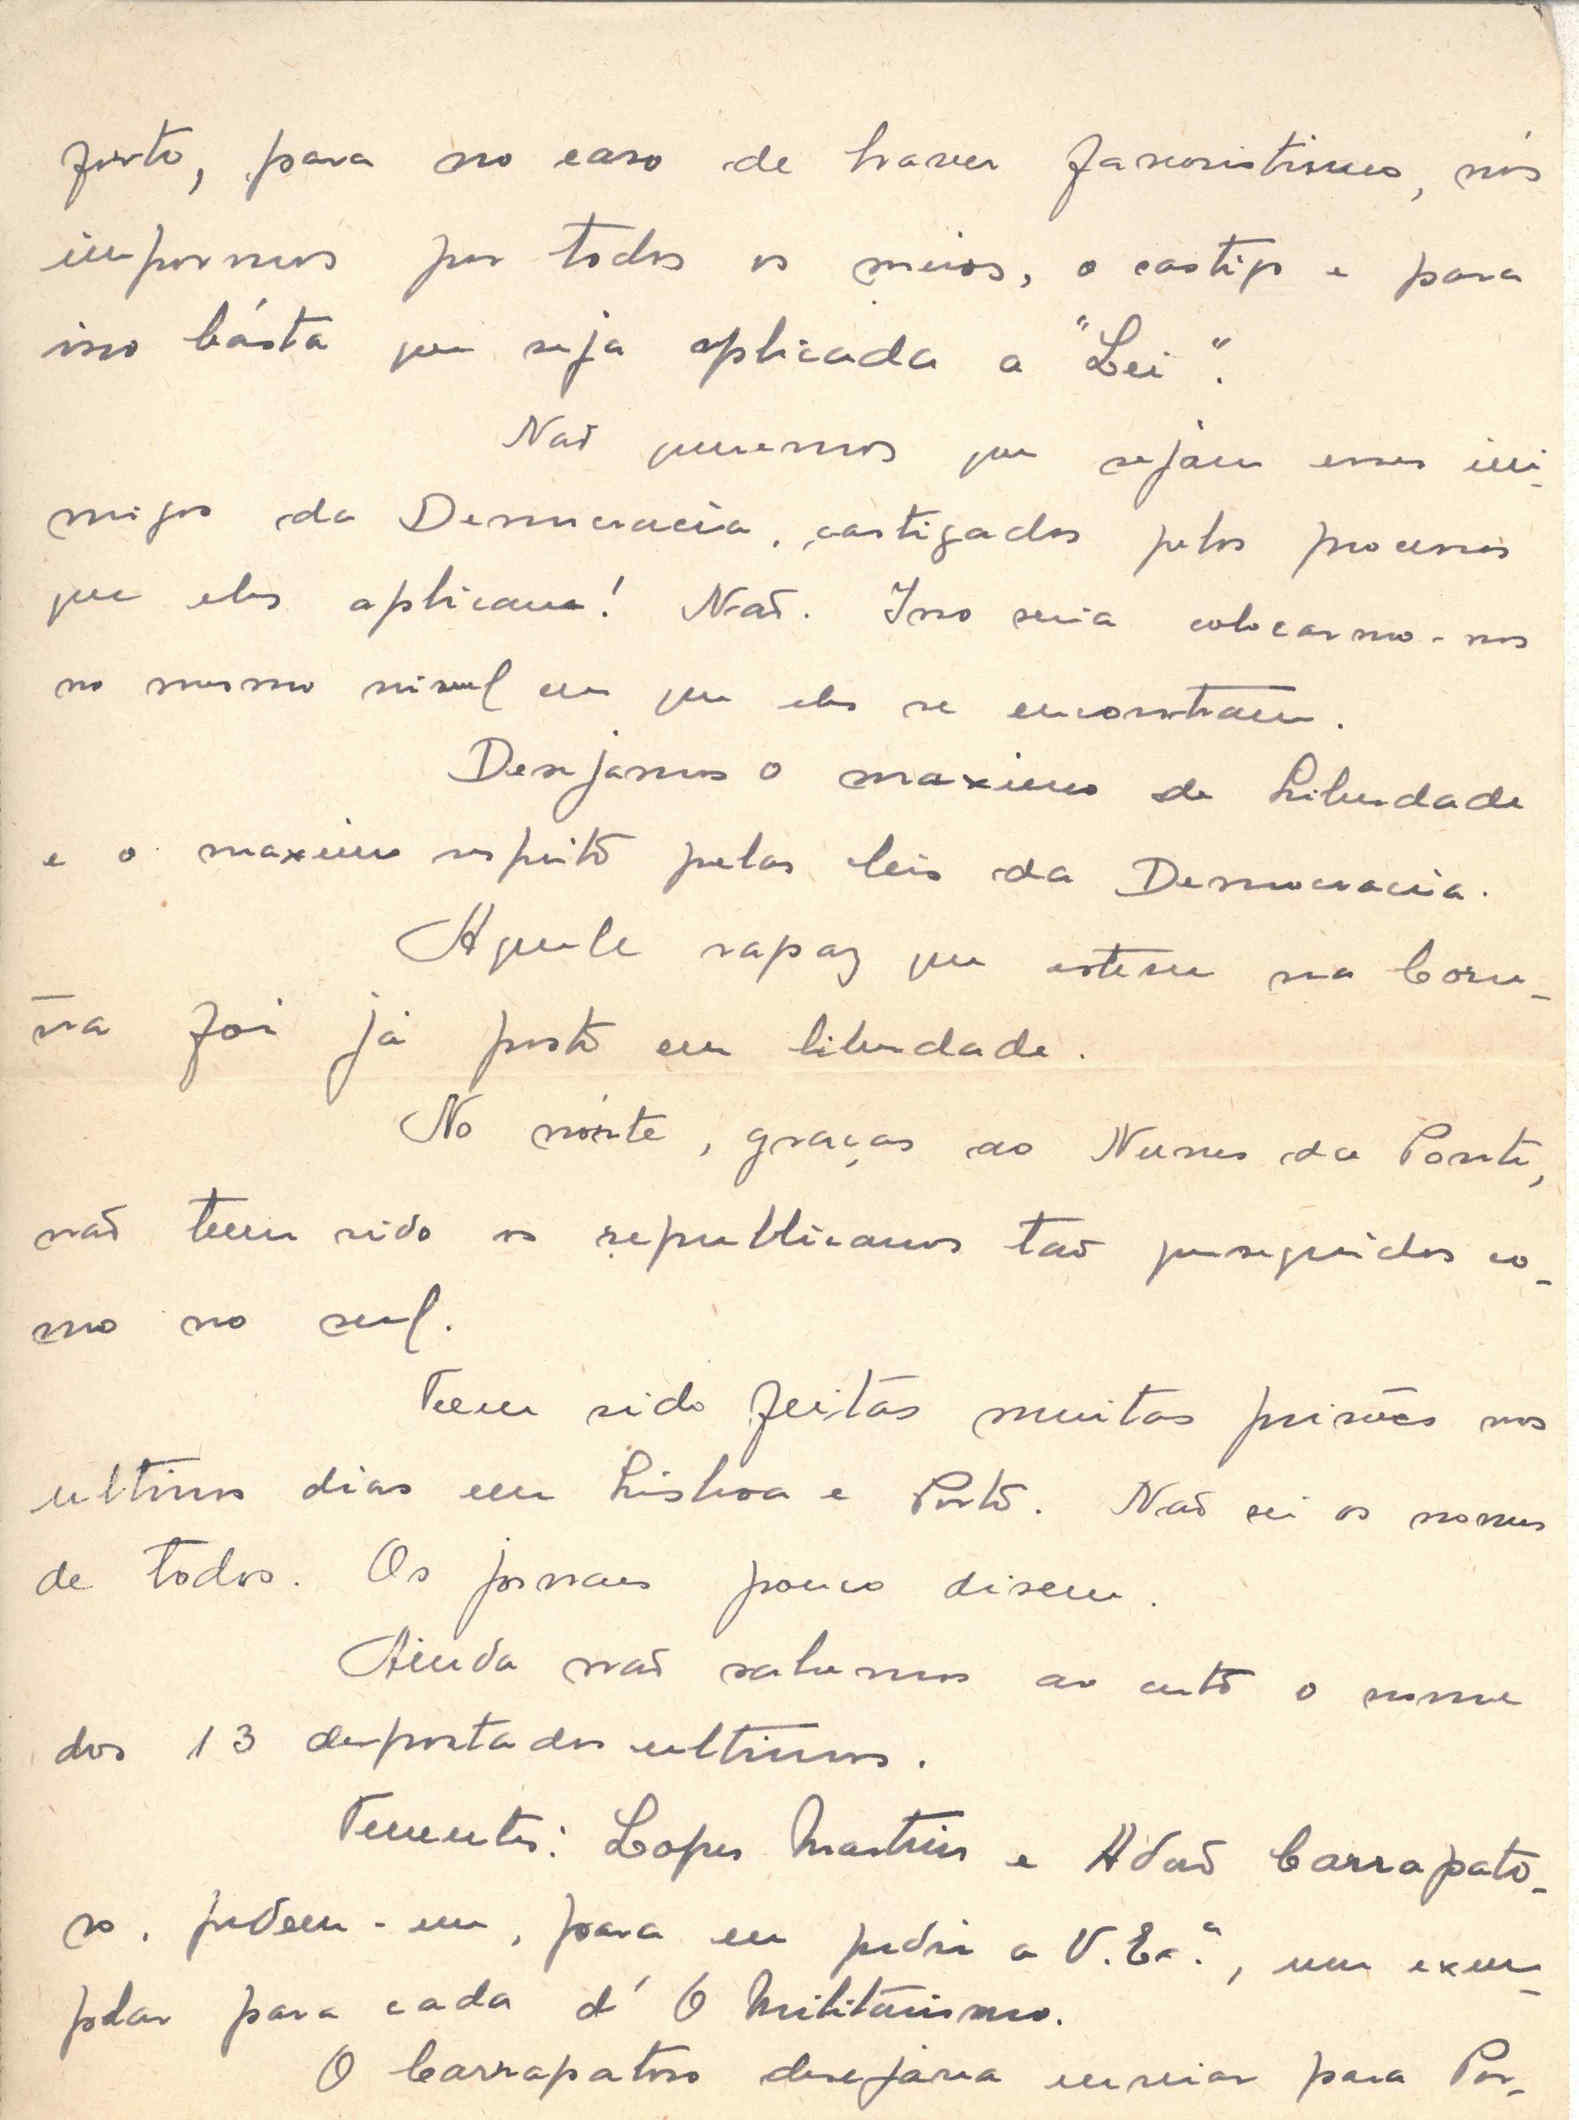 forte, para no caso de haver favoritismo, nós
impormos por todos os meios, o castigo e para
isso básta que seja aplicada a "Lei".
Naõ queremos que sejam esses ini-
migos da Democracia, castigados pelos processos
que eles aplicam! Naõ. Isso seria colocarmo-nos
no mesmo nivel em que eles se encontram.
Desejamos o maximo de Liberdade
e o maximo respeito pelas leis da Democracia.
Aquele rapaz que esteve na Coru-
ña foi já posto em liberdade.
No nórte, graças ao Nunes da Ponte,
naõ teem sido os republicanos taõ perseguidos co-
mo no sul.
Teem sido feitas muitas prisões nos
ultimos dias em Lisboa e Porto. Naõ sei os nomes
de todos. Os jornaes pouco disem.
Ainda naõ sabemos ao certo o nome
dos 13 deportados ultimos.
Tenentes: Lopes Martins e Adaõ Carrapato-
so, pedem-me, para eu pedir a V. Exª., um exem-
plar para cada d' O Militarismo.
O Carrapatoso desejava enviar para Por-